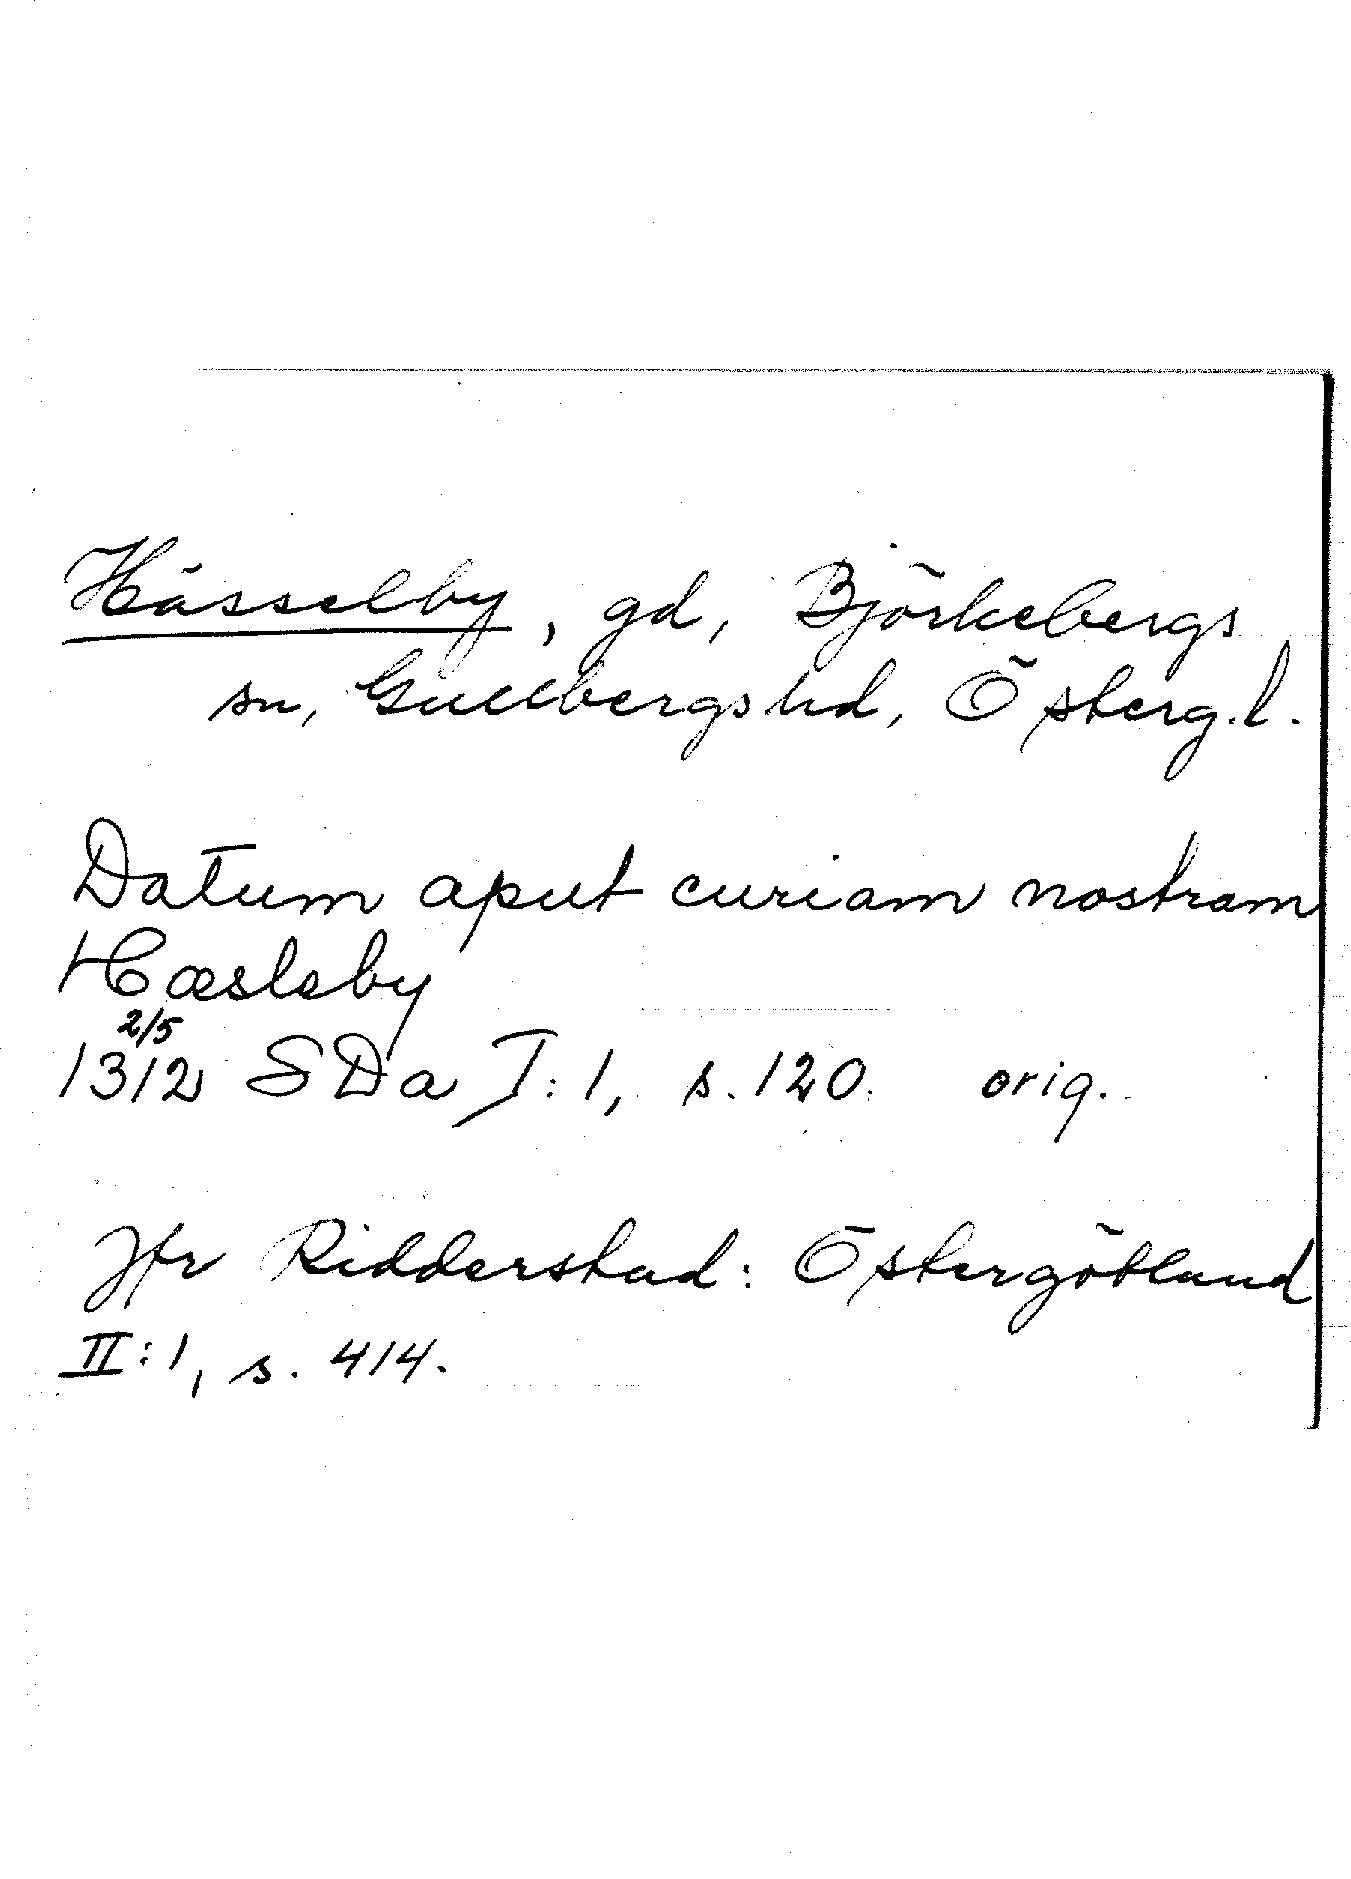 Hässelby, gd, Björkebergs
sn, Gullbergs hd, Österg.l.
Datum aput curiam nostram
Hæsleby
2/5
1312 SDa I:1, s.120. orig.
Jfr Ridderstad: Östergötland
II:1, s. 414.